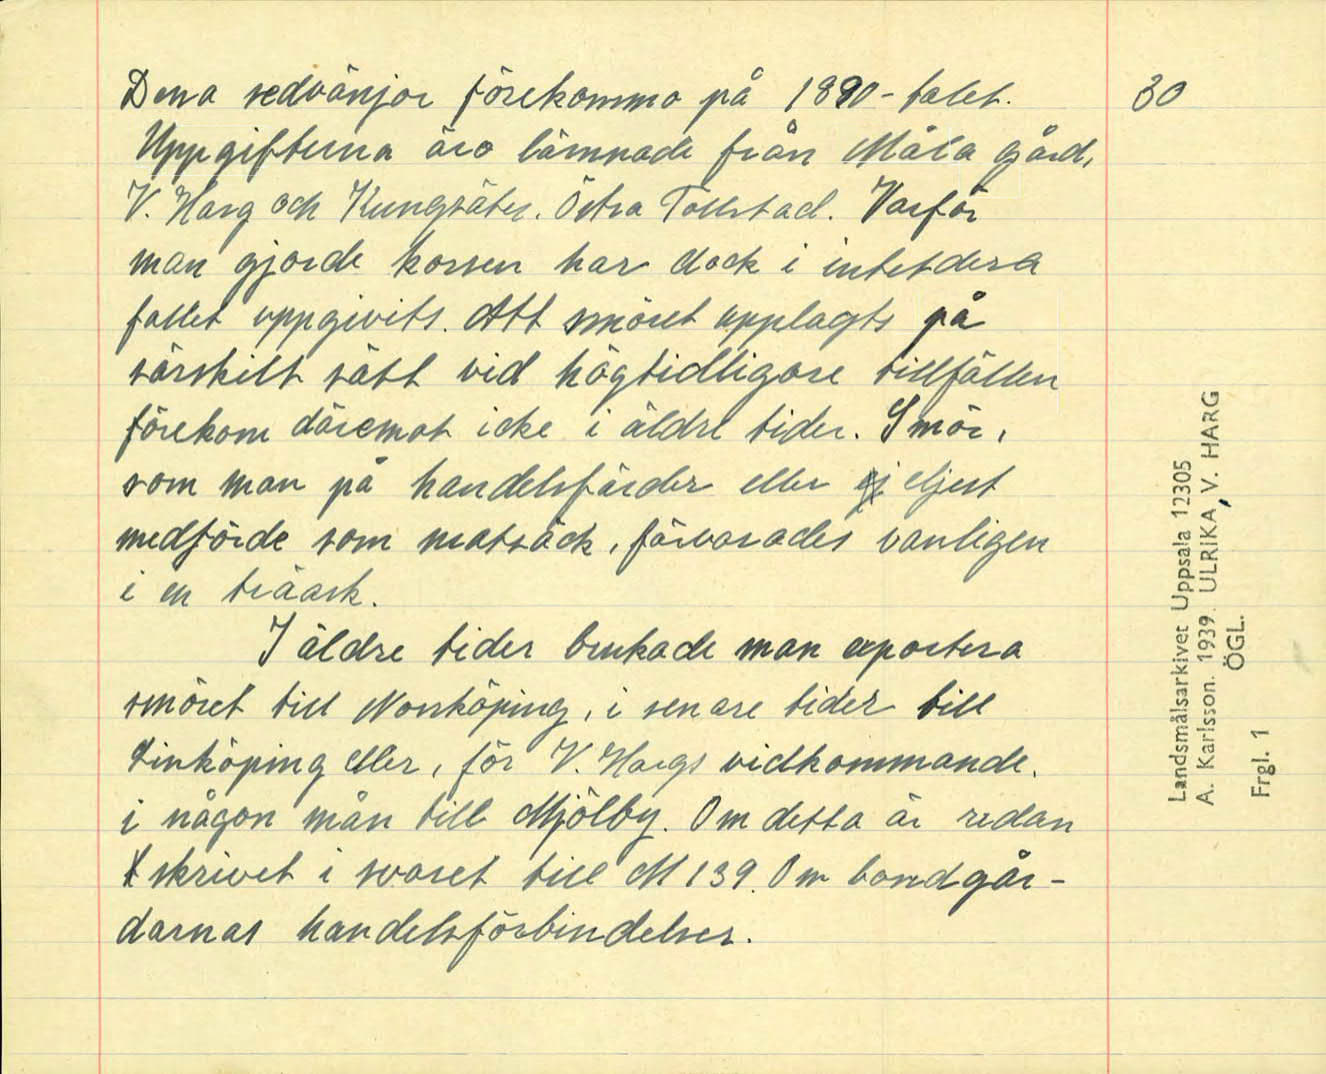 Dessa sedvänjor förekommo på 1890-talet.
Uppgifterna äro lämnade från Måla gård,
V. Harg och Kungsäter. Östra Tollstad. Varför
man gjorde korsen har dock i intetdera
fallet uppgivits. Att smöret upplagts på
särskilt sätt vid högtidligare tillfällen
förekom däremot icke i äldre tider. Smör,
som man på handelsfärder eller eljest
medförde som matsäck, förvarades vanligen
i en träask.
I äldre tider brukade man exportera
smöret till Norrköping, i senare tider till
Linköping eller, för V. Hargs vidkommande,
i någon mån till Mjölby. Om detta är redan
skrivet i svaret till M 139. Om bondgår-
darnas handelsförbindelser.
30
Landsmålsarkivet Uppsala 12305
A. Karlsson. 1939. ULRIKA, V. HARG
ÖGL.
Frgl. 1